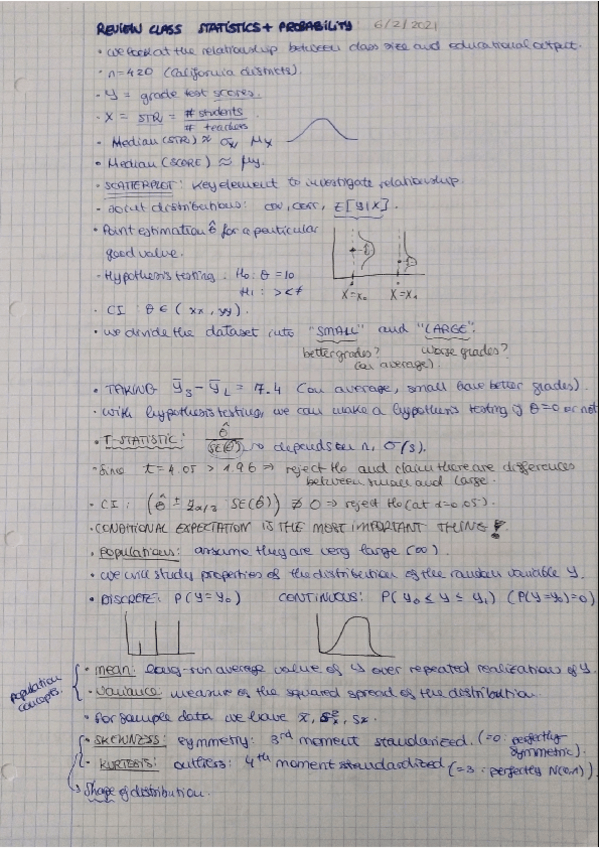 REVIEW CLASS STATISTICS + PROBABILITY 6/2/2021
• We look at the relationship between class size and educational output.
• n=420 (California districts).
• Y = grade test scores.
• X = STR = # students / # teachers
• Median (STR) ≈ μx
• Median (SCORE) ≈ μy.
• SCATTERPLOT: Key element to investigate relationship.
• Joint distributions: cov, corr, E[Y|X].
• Point estimation θ̂ for a particular
good value.
• Hypothesis testing: H0: θ = 10
H1: > < ≠
X=x0 X=x1
• CI: θ ∈ (xx, yy).
• We divide the dataset into "SMALL" and "LARGE":
better grades? Worse grades?
(on average).
• TAKING Ȳs - ȲL = 7.4 (on average, small have better grades).
• With hypothesis testing, we can make a hypothesis testing if θ=0 or not
• T-STATISTIC: θ̂ / SE(θ̂) → depends on n, σ(s).
• Since t = 4.05 > 1.96 ⇒ reject H0 and claim there are differences
between small and large.
• CI: (θ̂ ± zα/2 SE(θ̂)) ∌ 0 ⇒ reject H0 (at α=0.05).
• CONDITIONAL EXPECTATION IS THE MOST IMPORTANT THING!
• Populations: assume they are very large (∞).
• We will study properties of the distribution of the random variable Y.
• DISCRETE: P(Y=y0) CONTINUOUS: P(y0 ≤ Y ≤ y1) (P(Y=y0)=0)
population concepts.
• mean: long-run average value of Y over repeated realization of Y.
• Variance: measure of the squared spread of the distribution.
• For sample data we have x̄, s²x, sx.
• SKEWNESS: symmetry: 3rd moment standarized. (=0: perfectly
symmetric).
• KURTOSIS: outliers: 4th moment standardized (=3: perfectly N(0,1)).
Shape of distribution.